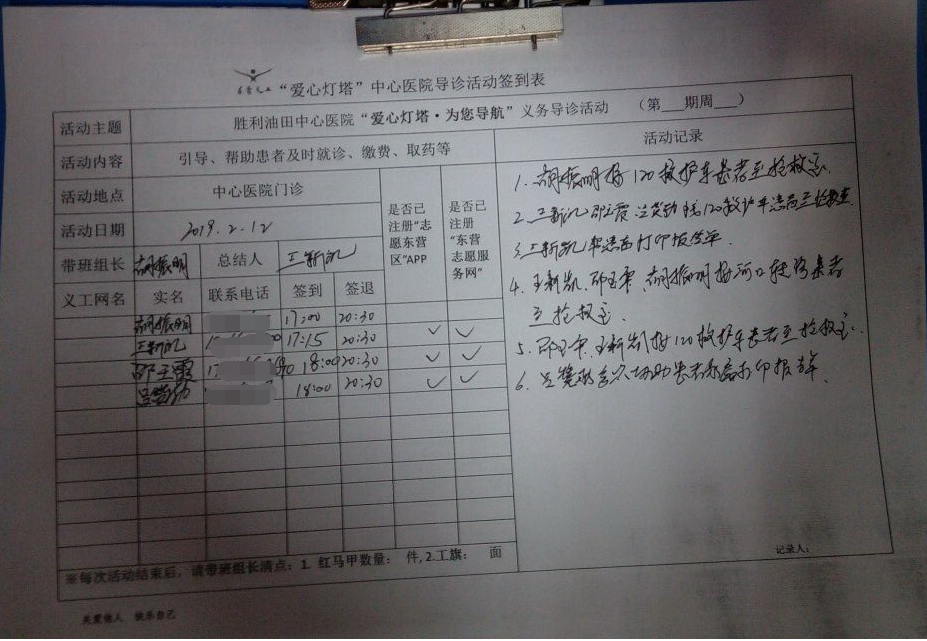 “爱心灯塔”中心医院导诊活动签到表
活动主题 胜利油田中心医院“爱心灯塔·为您导航”义务导诊活动 （第 期周 ）
活动内容 引导、帮助患者及时就诊、缴费、取药等
活动地点 中心医院门诊
活动日期 2019.2.12
带班组长 胡振明 总结人 王新凯
是否已注册“志愿东营区”APP
是否已注册“东营志愿服务网”
义工网名 实名 联系电话 签到 签退
胡振明 17:00 20:30
王新凯 17:15 20:30 ✓ ✓
邵玉霞 18:00 20:30 ✓ ✓
18:00 20:30 ✓ ✓
活动记录
1. 胡振明接120救护车患者至抢救室.
2. 王新凯 邵玉霞 120救护车患者至抢救室
3. 王新凯 患者打印报告单.
4. 王新凯. 胡振明接河口 患者
至抢救室.
5. 王新凯接120救护车患者至抢救室.
6. 协助患者 打印报告单.
记录人：
※每次活动结束后，请带班组长清点：1. 红马甲数量： 件, 2.工旗： 面
关爱他人 快乐自己